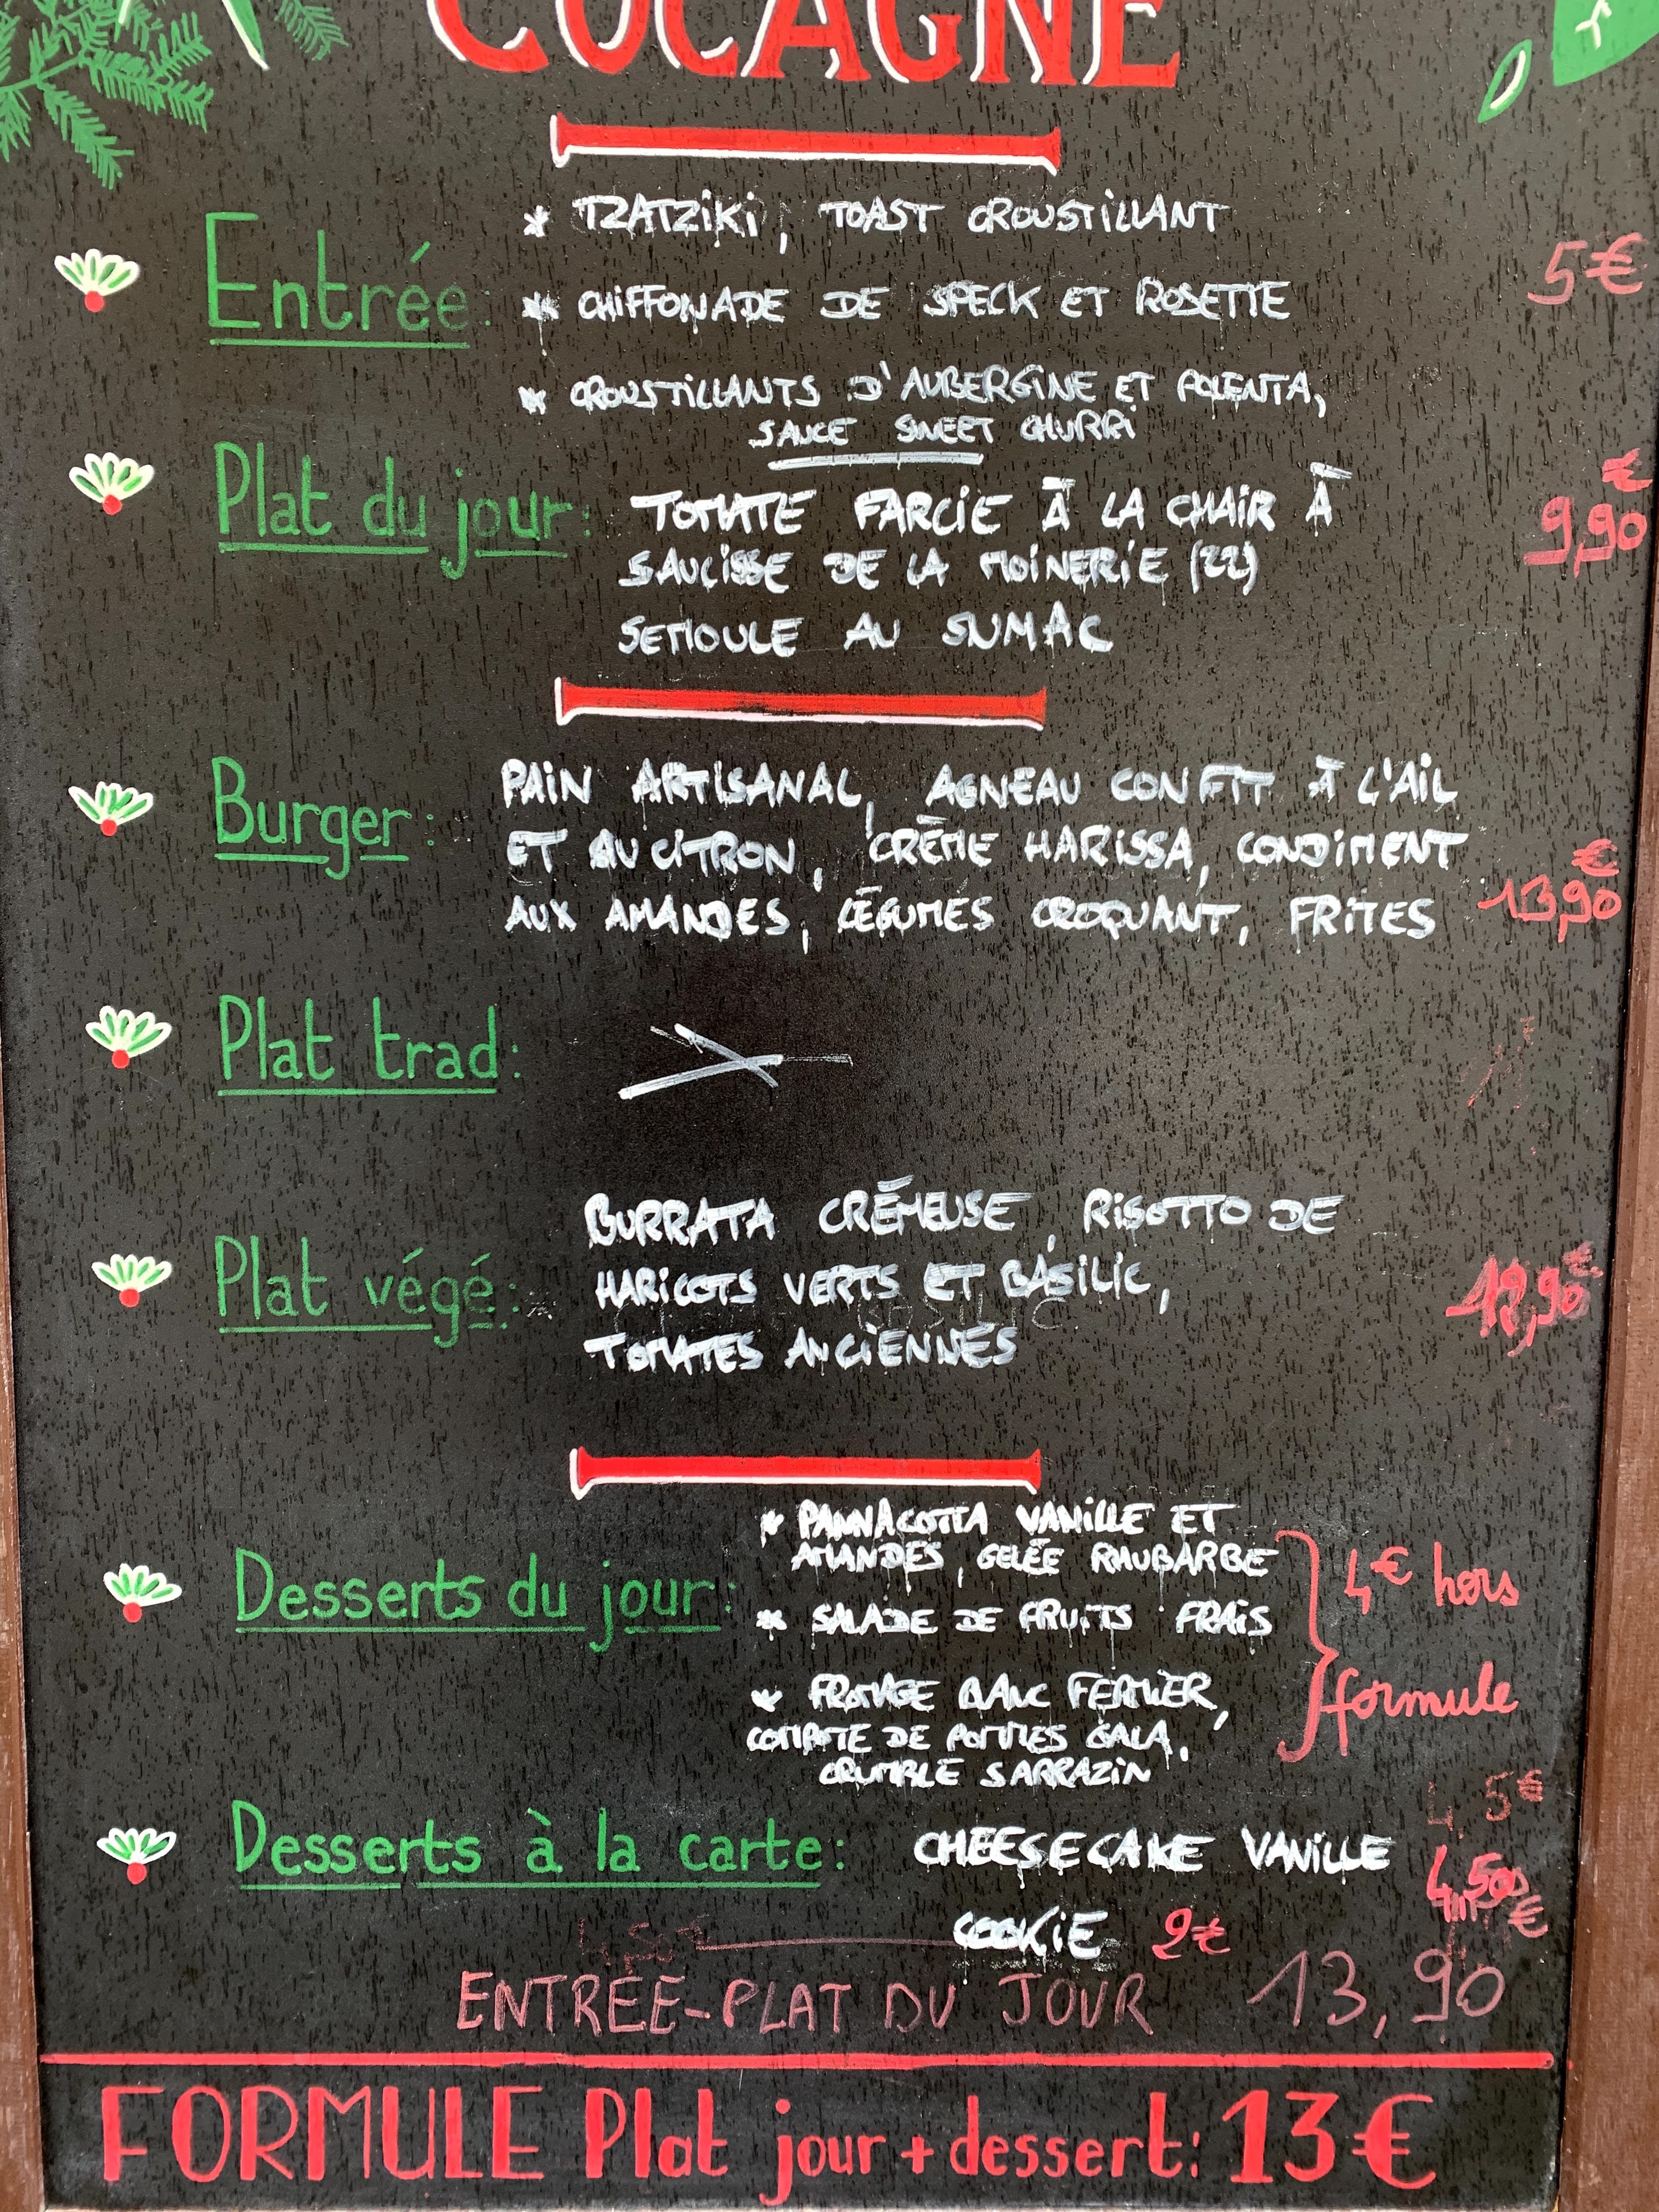 COCAGNE
* TZATZIKI, TOAST CROUSTILLANT
Entrée:
5€
* CHIFFONADE DE SPECK ET ROSETTE
* CROUSTILLANTS D'AUBERGINE ET POLENTA,
SAUCE SWEET CHURRI
Plat du jour: TOMATE FARCIE À LA CHAIR À
9,90 €
SAUCISSE DE LA MOINERIE (22)
SEMOULE AU SUMAC
Burger: PAIN ARTISANAL, AGNEAU CONFIT À L'AIL
ET AU CITRON, CRÈME HARISSA, CONDIMENT
AUX AMANDES, LÉGUMES CROQUANT, FRITES
13,90 €
Plat trad:
BURRATA CRÉMEUSE, RISOTTO DE
Plat végé: HARICOTS VERTS ET BASILIC,
12,90 €
TOMATES ANCIENNES
* PANNACOTTA VANILLE ET
AMANDES, GELÉE RHUBARBE
Desserts du jour: * SALADE DE FRUITS FRAIS
4€ hors
formule
* FROMAGE BLANC FERMIER,
COMPOTE DE POMMES GALA,
CRUMBLE SARRAZIN
Desserts à la carte: CHEESECAKE VANILLE 4,50 €
COOKIE 2€
ENTRÉE-PLAT DU JOUR 13,90
FORMULE Plat jour + dessert: 13€